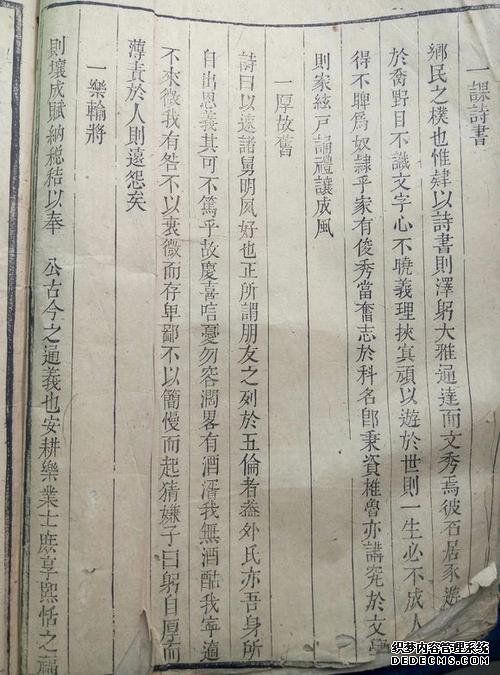 一課詩書
鄉民之樸也惟肄以詩書則澤躬大雅通達而文秀焉彼石居豕遊
於喬野目不識文字心不曉義理挾寘頑以遊於世則一生必不成人
得不聨為奴隷乎家有俊秀當奮志於科名卽秉資椎魯亦講究於文
則家絃戶誦禮讓成風
一厚故舊
詩曰以速諸舅明夙好也正所謂朋友之列於五倫者葢外氏亦吾身所
自出恩義其可不篤乎故慶喜唁憂勿容濶畧有酒湑我無酒酤我寧適
不來微我有咎不以衰微而存卑鄙不以簡慢而起猜嫌子曰躬自厚而
薄責於人則遠怨矣
一樂輸將
則壤成賦納稅秸以奉 公古今之通義也安耕樂業士庶享熙恬之福
聚茂内容管理系统
WWW.DEDECMS.COM